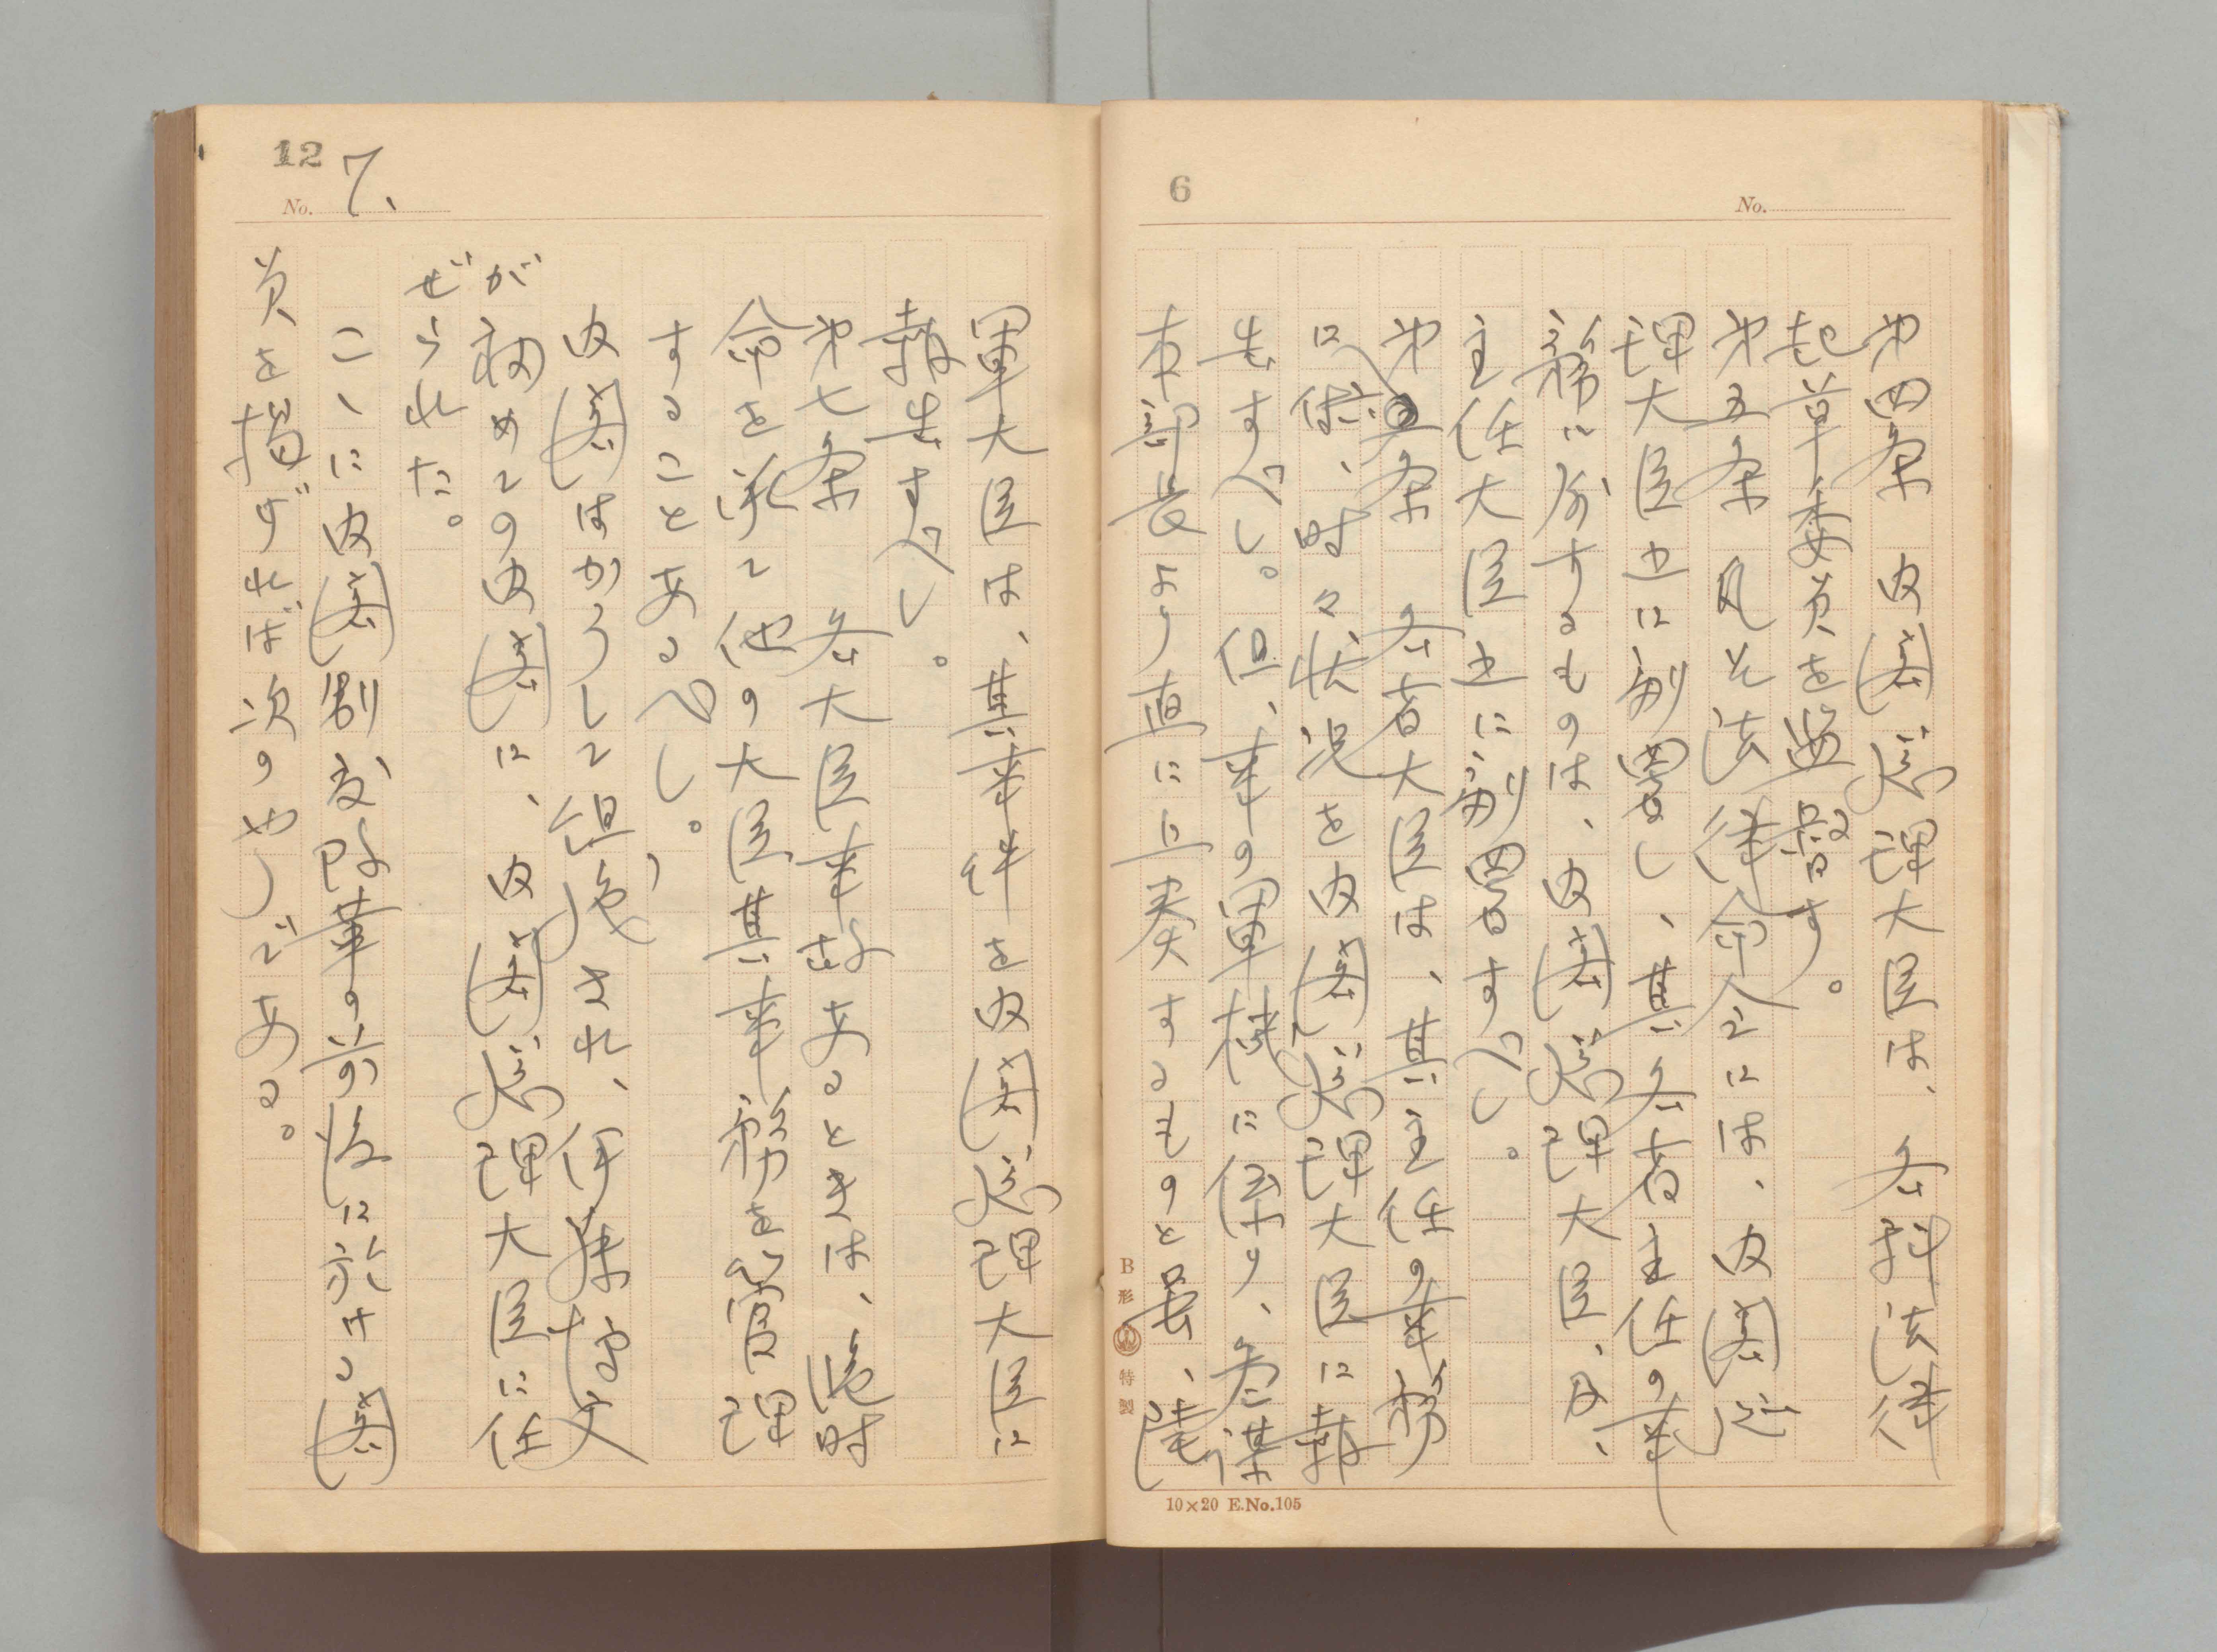 6
No.
第四条 内閣総理大臣は、各科法律
起草委員を監督す。
第五条 凡そ法律命令には、内閣総
理大臣之に副署し、其各省主任の事
務に属するものは、内閣総理大臣、及、
主任大臣之に副署すべし。
第六条 各省大臣は、其主任の事務
に付、時々状況を内閣総理大臣に報
告すべし。但、事の軍機に係り、参謀
本部長より直に上奏するものと雖、陸
B形 特製
10×20 E.No.105
12
No. 7、
軍大臣は、其事件を内閣総理大臣に
報告すべし。
第七条 各大臣事故あるときは、臨時
命を承て他の大臣其事務を管理
することあるべし。
内閣はかうして組織され、伊藤博文
が初めての内閣に、内閣総理大臣に任
ぜられた。
こゝに内閣制度改革の前後に於ける閣
員を掲ぐれば次の如しである。